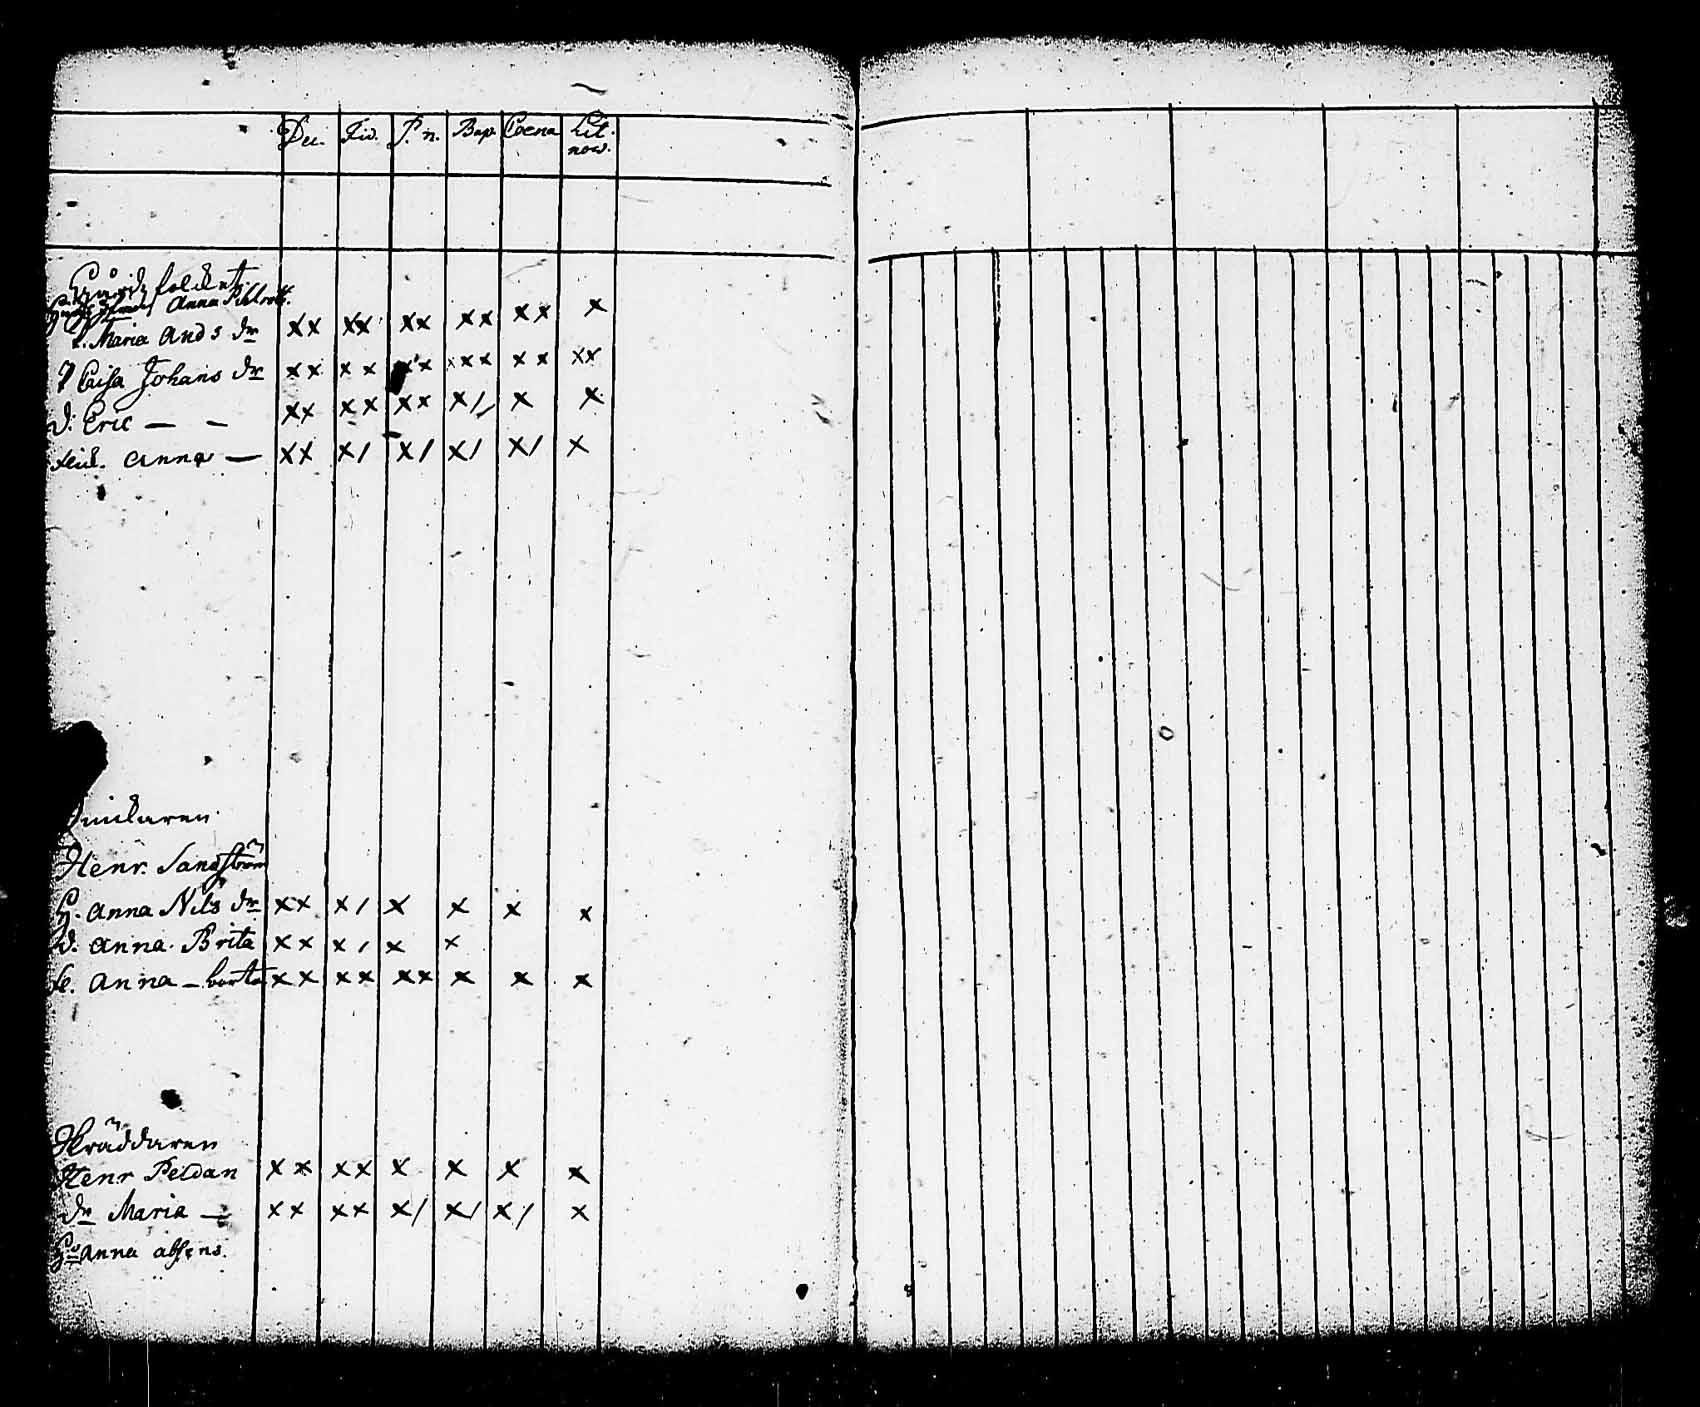 Dec. Fid. P. n. Bap. Coena Lit. nov.
Gårdz soldat
Anna
l. Maria And s dr xx xx xx xx xx x
Caisa Johans dr xx xx xx xxx xx xx
d: Eric — — xx xx xx x/ x x
Anna — xx x/ x/ x/ x/ x
Henr. Sandström
H. Anna Nils dr xx x/ x x x x
d. Anna Brita xx x/ x x
Anna – borta xx xx xx x x x
Skräddaren
Henr Peldan xx xx x x x x
dr Maria — xx xx x/ x/ x/ x
Anna absens.